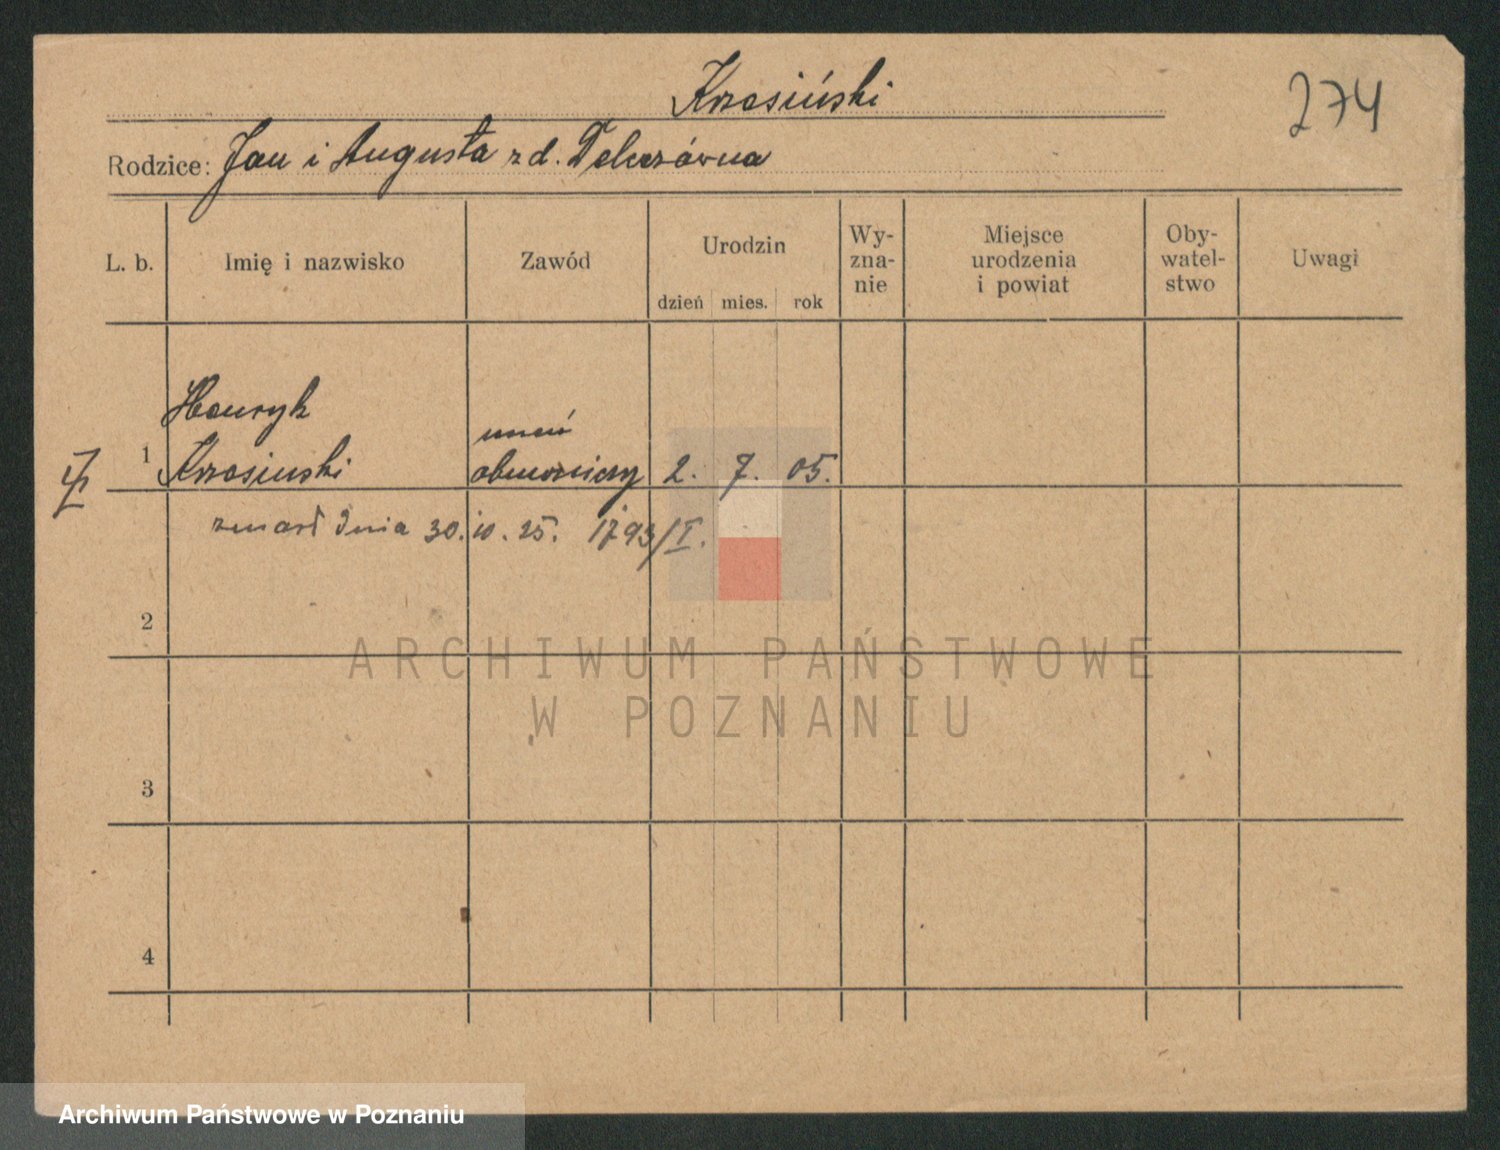 Krzesiński
274
Rodzice: Jan i Augusta z d.
L. b. Imię i nazwisko Zawód Urodzin dzień mies. rok Wy-
zna-
nie Miejsce
urodzenia
i powiat Oby-
watel-
stwo Uwagi
Henryk
uczeń
1 Krzesinski 2. 7. 05.
zmarł dnia 30. 10. 25. 1793/I.
2
ARCHIWUM PAŃSTWOWE
W POZNANIU
3
4
Archiwum Państwowe w Poznaniu